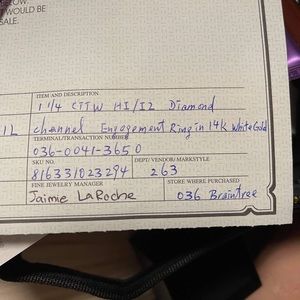 BELOW.
T WOULD BE
SALE.
ITEM AND DESCRIPTION
1 1/4 CTTW HI/I2 Diamond
channel Engagement Ring in 14k White Gold
TERMINAL/TRANSACTION NUMBER
036-0041-3650
SKU NO. DEPT/VENDOR/MARKSTYLE
816331023294 263
FINE JEWELRY MANAGER STORE WHERE PURCHASED
Jaimie LaRoche 036 Braintree